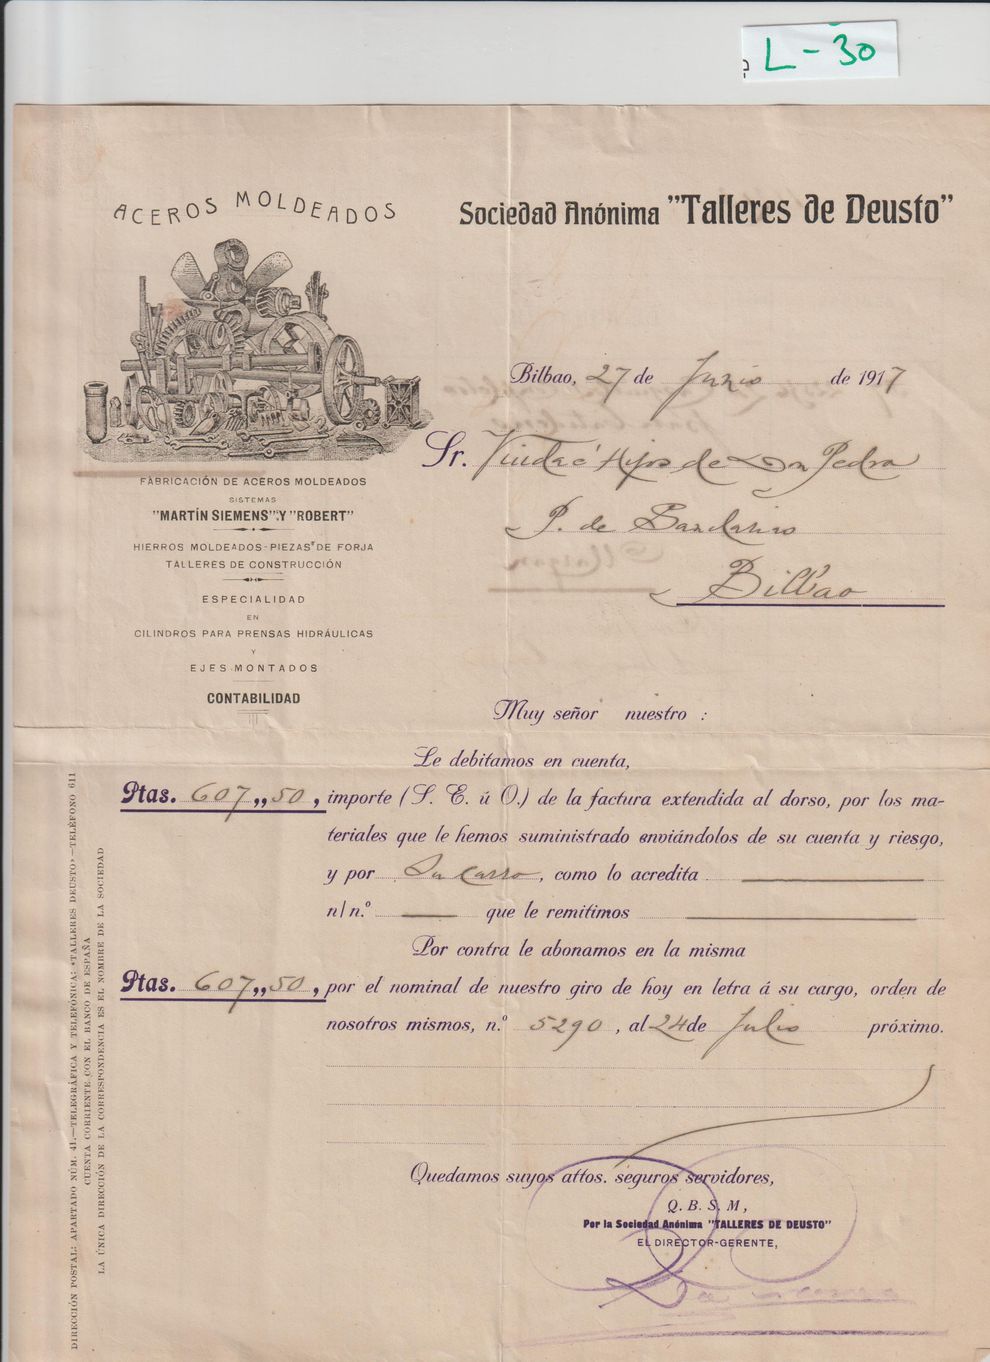 L-30
ACEROS MOLDEADOS
Sociedad Anónima "Talleres de Deusto"
Bilbao, 27 de Junio de 1917
Sr. Viuda é Hijos de Don Pedro
P. de Gandarias
Bilbao
FABRICACIÓN DE ACEROS MOLDEADOS
SISTEMAS
"MARTÍN SIEMENS" Y "ROBERT"
HIERROS MOLDEADOS-PIEZAS DE FORJA
TALLERES DE CONSTRUCCIÓN
ESPECIALIDAD
EN
CILINDROS PARA PRENSAS HIDRÁULICAS
Y
EJES MONTADOS
CONTABILIDAD
Muy señor nuestro :
Le debitamos en cuenta,
Ptas. 607,,50, importe (S. E. ú O.) de la factura extendida al dorso, por los ma-
teriales que le hemos suministrado enviándolos de su cuenta y riesgo,
y por Su Carro, como lo acredita
n/n.º que le remitimos
Por contra le abonamos en la misma
Ptas. 607,,50, por el nominal de nuestro giro de hoy en letra á su cargo, orden de
nosotros mismos, n.º 5290, al 24 de Julio próximo.
Quedamos suyos attos. seguros servidores,
Q. B. S. M,
Por la Sociedad Anónima "TALLERES DE DEUSTO"
EL DIRECTOR-GERENTE,
DIRECCIÓN POSTAL: APARTADO NÚM. 41.—TELEGRÁFICA Y TELEFÓNICA: «TALLERES DEUSTO»—TELÉFONO 611
CUENTA CORRIENTE CON EL BANCO DE ESPAÑA
LA ÚNICA DIRECCIÓN DE LA CORRESPONDENCIA ES EL NOMBRE DE LA SOCIEDAD